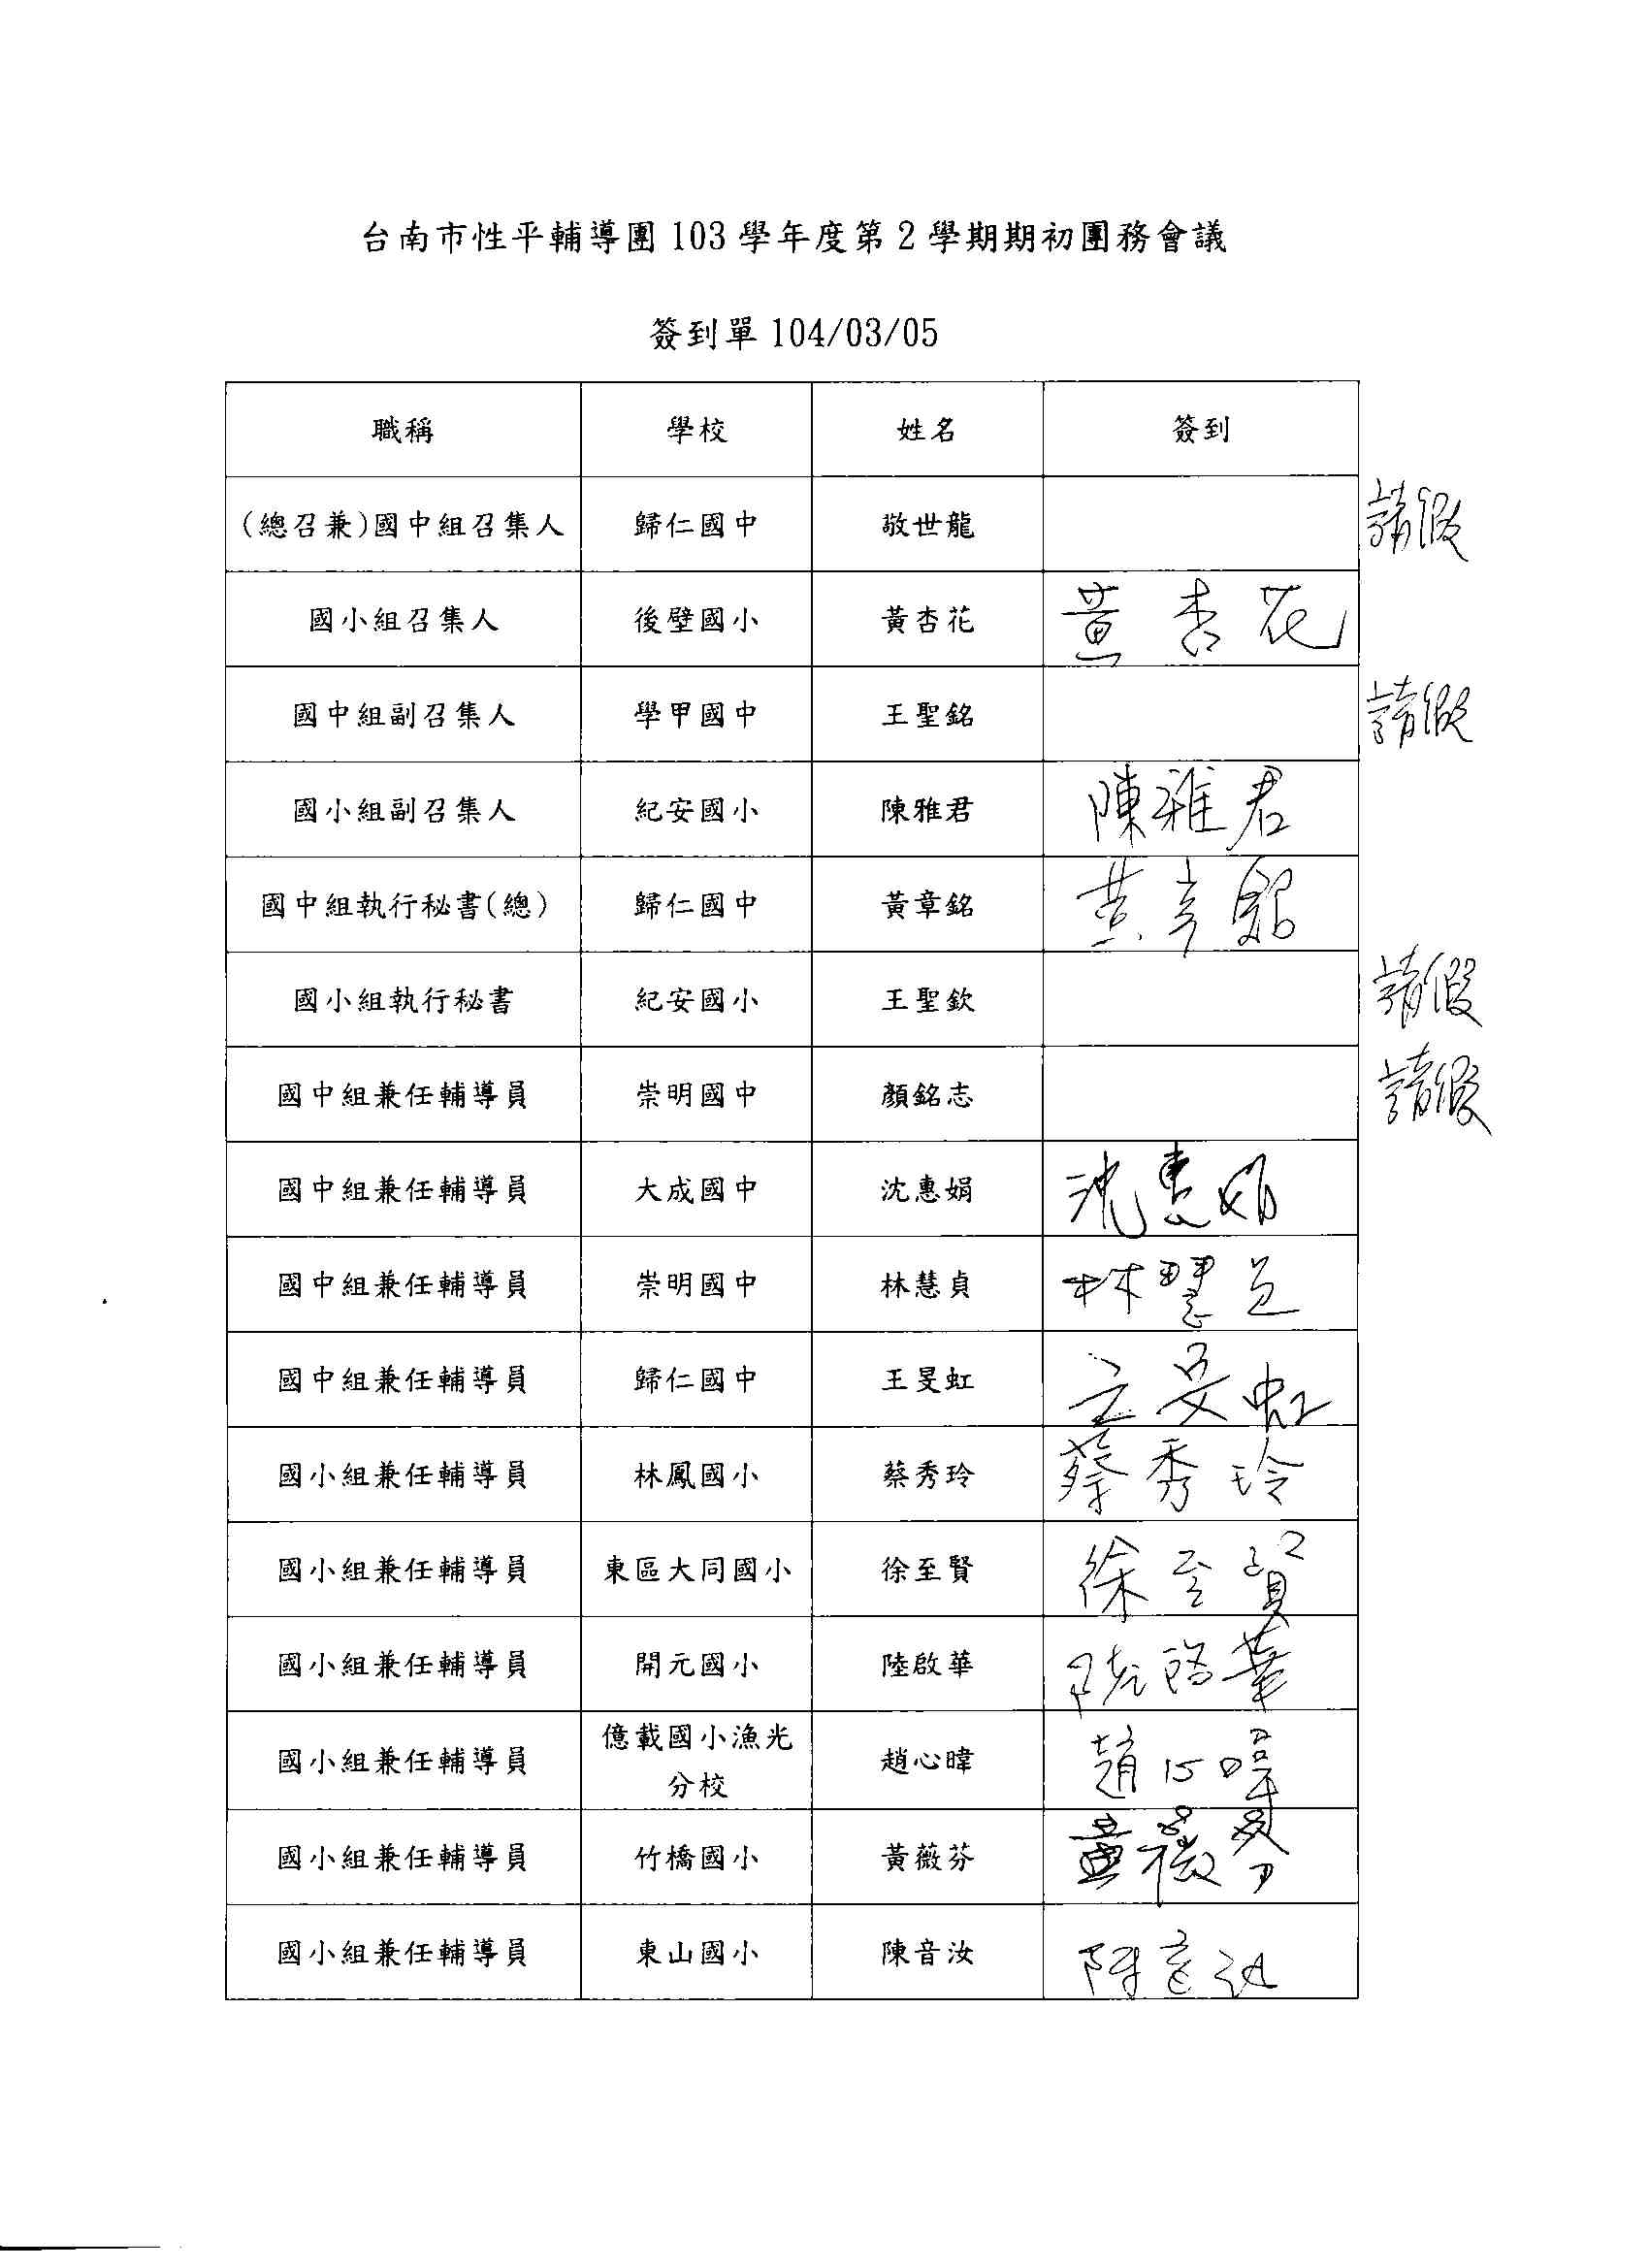 台南市性平輔導團 103 學年度第 2 學期期初團務會議
簽到單 104/03/05
職稱 學校 姓名 簽到
(總召兼)國中組召集人 歸仁國中 敬世龍 請假
國小組召集人 後壁國小 黃杏花 黃杏花
國中組副召集人 學甲國中 王聖銘 請假
國小組副召集人 紀安國小 陳雅君 陳雅君
國中組執行秘書(總) 歸仁國中 黃章銘 黃章銘
國小組執行秘書 紀安國小 王聖欽 請假
國中組兼任輔導員 崇明國中 顏銘志 請假
國中組兼任輔導員 大成國中 沈惠娟 沈惠娟
國中組兼任輔導員 崇明國中 林慧貞 林慧貞
國中組兼任輔導員 歸仁國中 王旻虹 王旻虹
國小組兼任輔導員 林鳳國小 蔡秀玲 蔡秀玲
國小組兼任輔導員 東區大同國小 徐至賢 徐至賢
國小組兼任輔導員 開元國小 陸啟華 陸啟華
國小組兼任輔導員 億載國小漁光分校 趙心暐 趙心暐
國小組兼任輔導員 竹橋國小 黃薇芬 黃薇芬
國小組兼任輔導員 東山國小 陳音汝 陳音汝